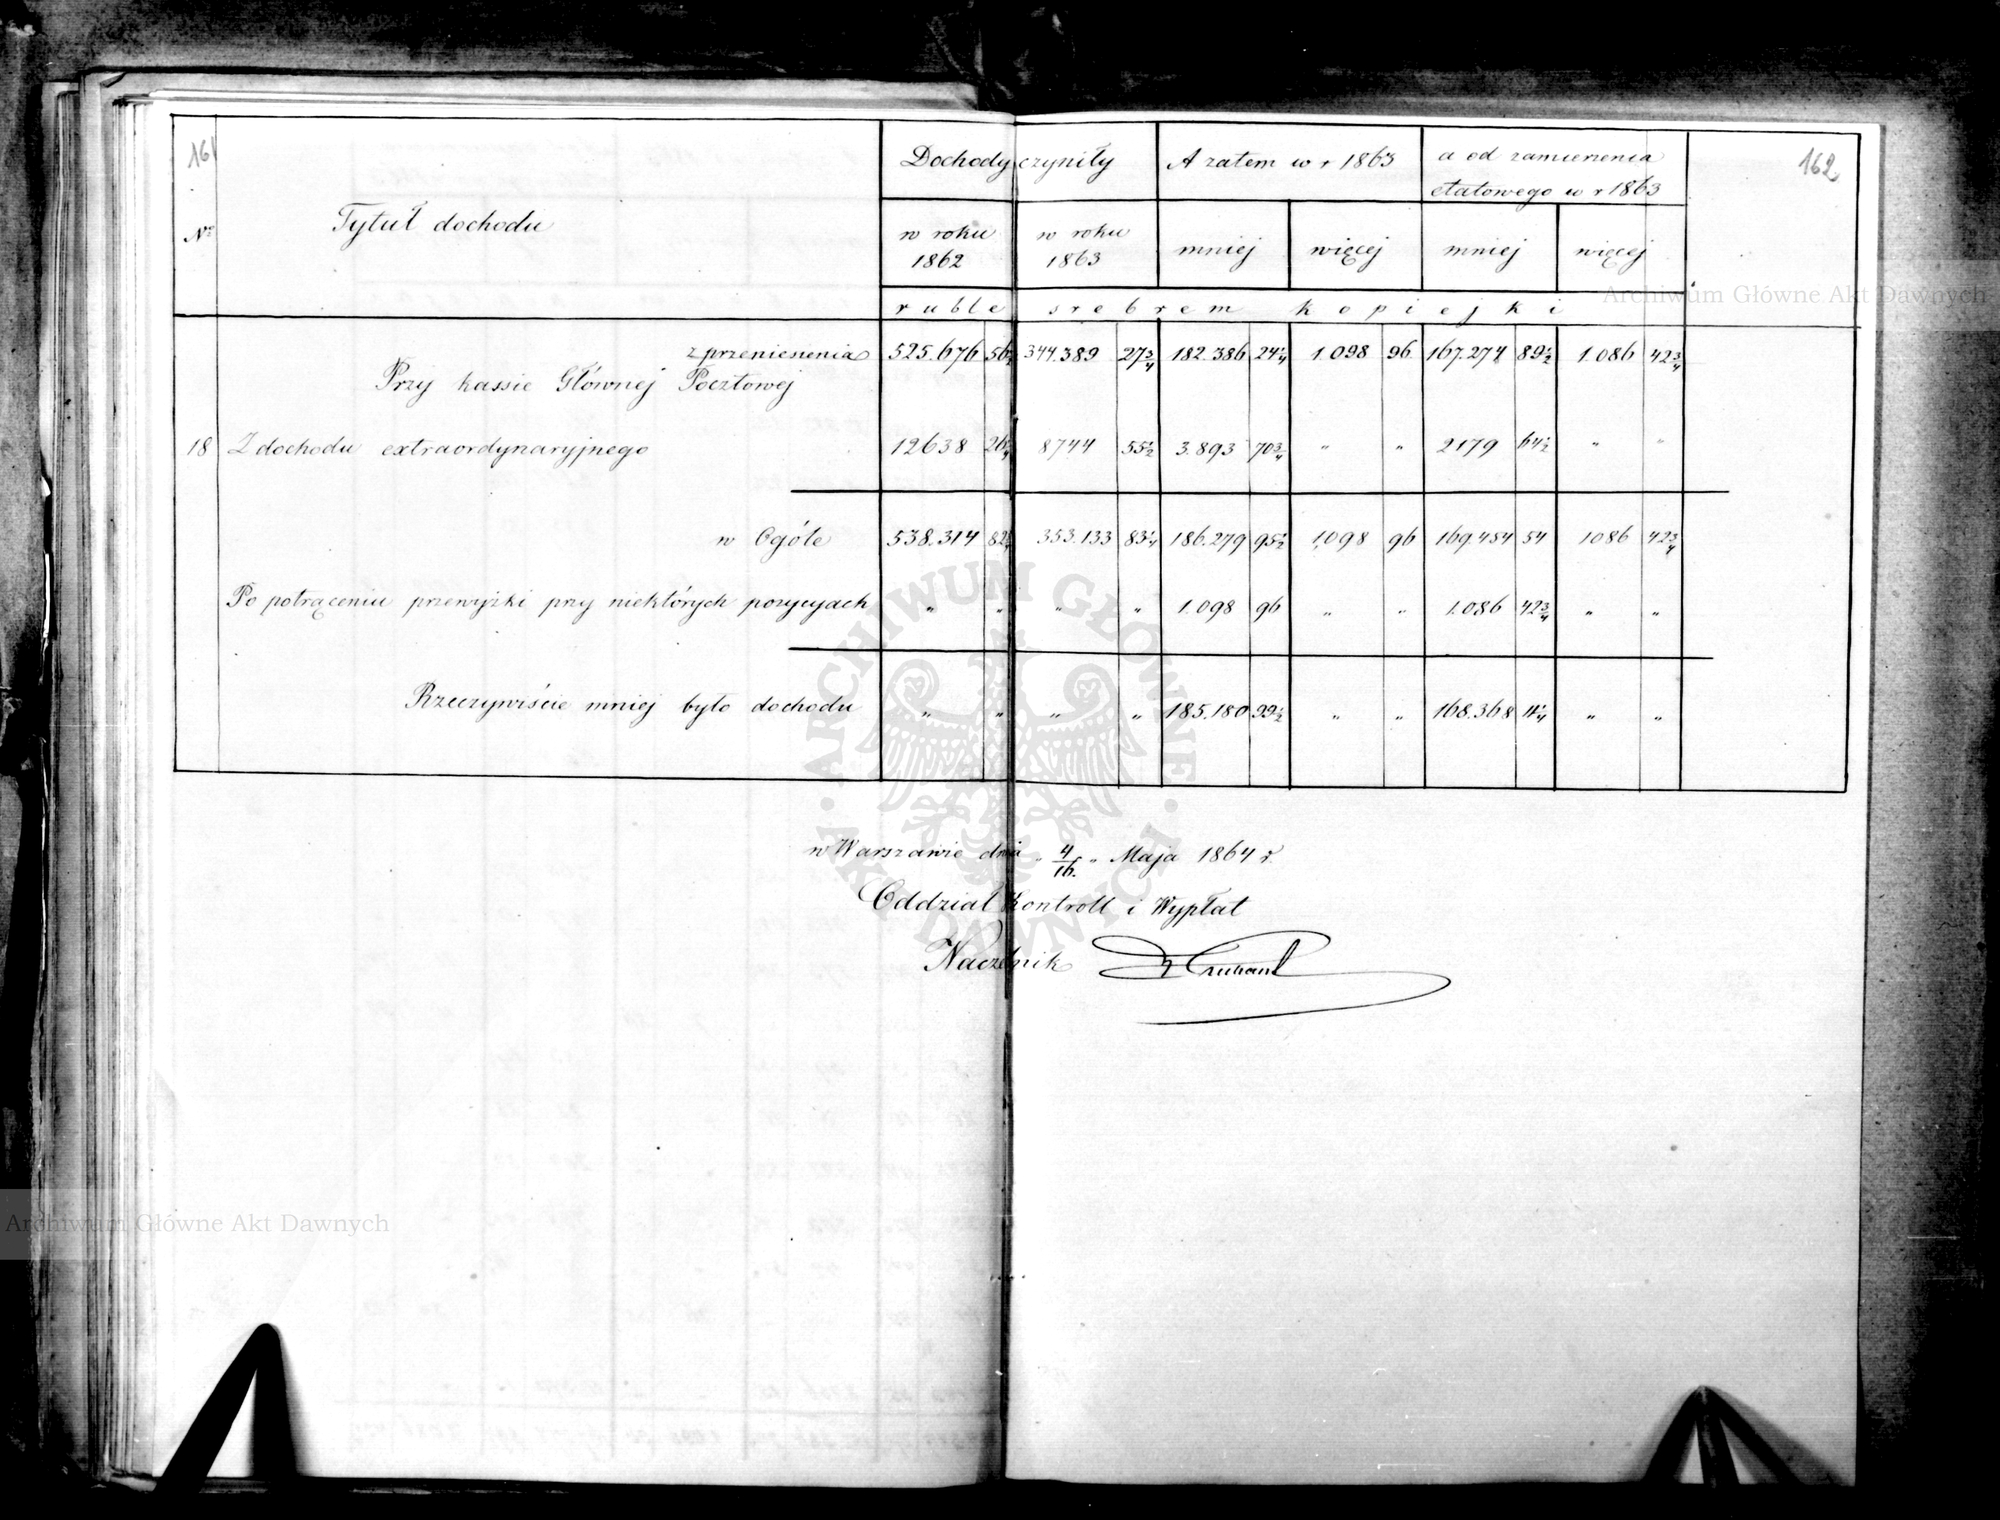 161
162
Nº
Tytuł dochodu
Dochody czyniły
A zatem w r 1863
a od zamierzenia
etatowego w r 1863
w roku 1862
w roku 1863
mniej
więcej
mniej
więcej
ruble srebrem kopiejki
z przeniesienia 525.676 56½ 344.389 27¾ 182.386 24¼ 1.098 96 167.274 89½ 1.086 42¾
Przy kassie Głównej Pocztowej
18 Z dochodu extraordynaryjnego 12638 26¼ 8744 55½ 3.893 70¾ " " 2179 64½ " "
w Ogóle 538.314 82¾ 353.133 83¼ 186.279 95½ 1,098 96 169.454 54 1086 42¾
Po potrąceniu przewyżki przy niektórych pozycyach " " " " 1.098 96 " " 1.086 42¾ " "
Rzeczywiście mniej było dochodu " " " " 185.180 99½ " " 168.368 11¼ " "
w Warszawie dnia " 4/16 " Maja 1864 r.
Oddział Kontroll i Wypłat
Naczelnik
Archiwum Główne Akt Dawnych
Archiwum Główne Akt Dawnych
ARCHIWUM GŁÓWNE AKT DAWNYCH